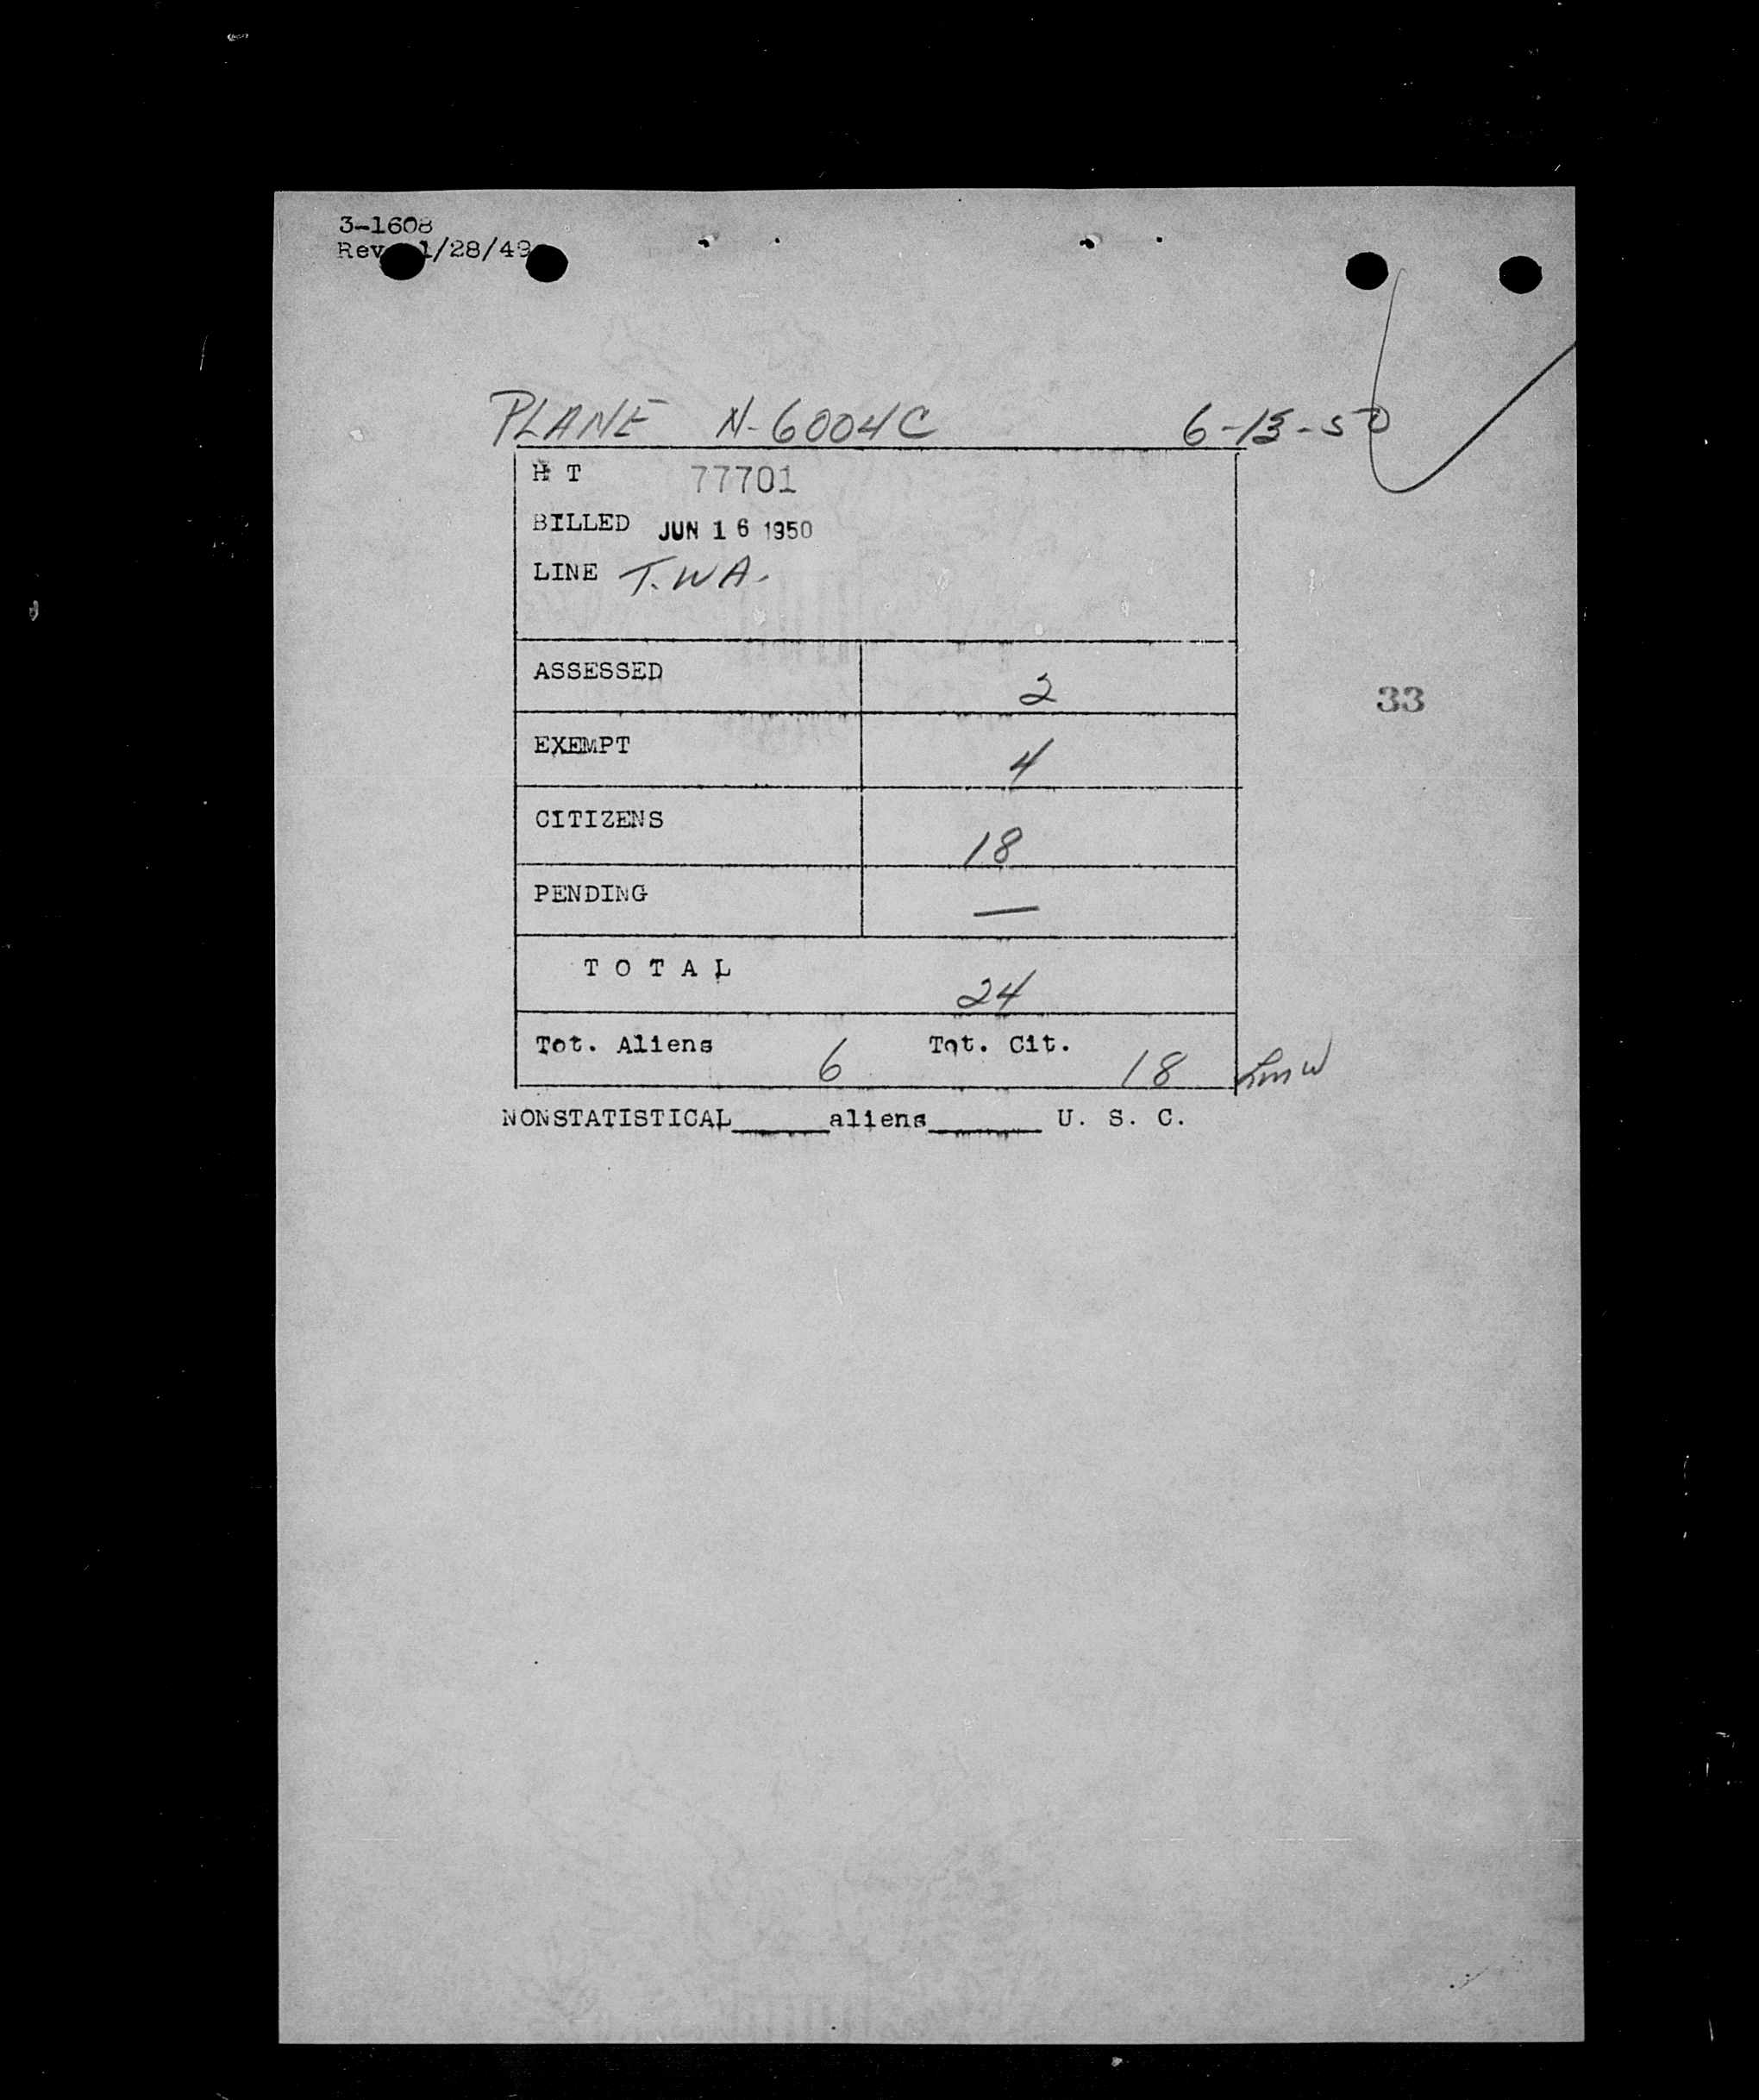 3-1608
Rev. 1/28/49
PLANE N-6004C 6-13-50
H T 77701
BILLED JUN 16 1950
LINE T.W.A.
ASSESSED 2
33
EXEMPT 4
CITIZENS 18
PENDING —
TOTAL 24
Tot. Aliens 6 Tot. Cit. 18
NONSTATISTICAL_____aliens______ U. S. C.